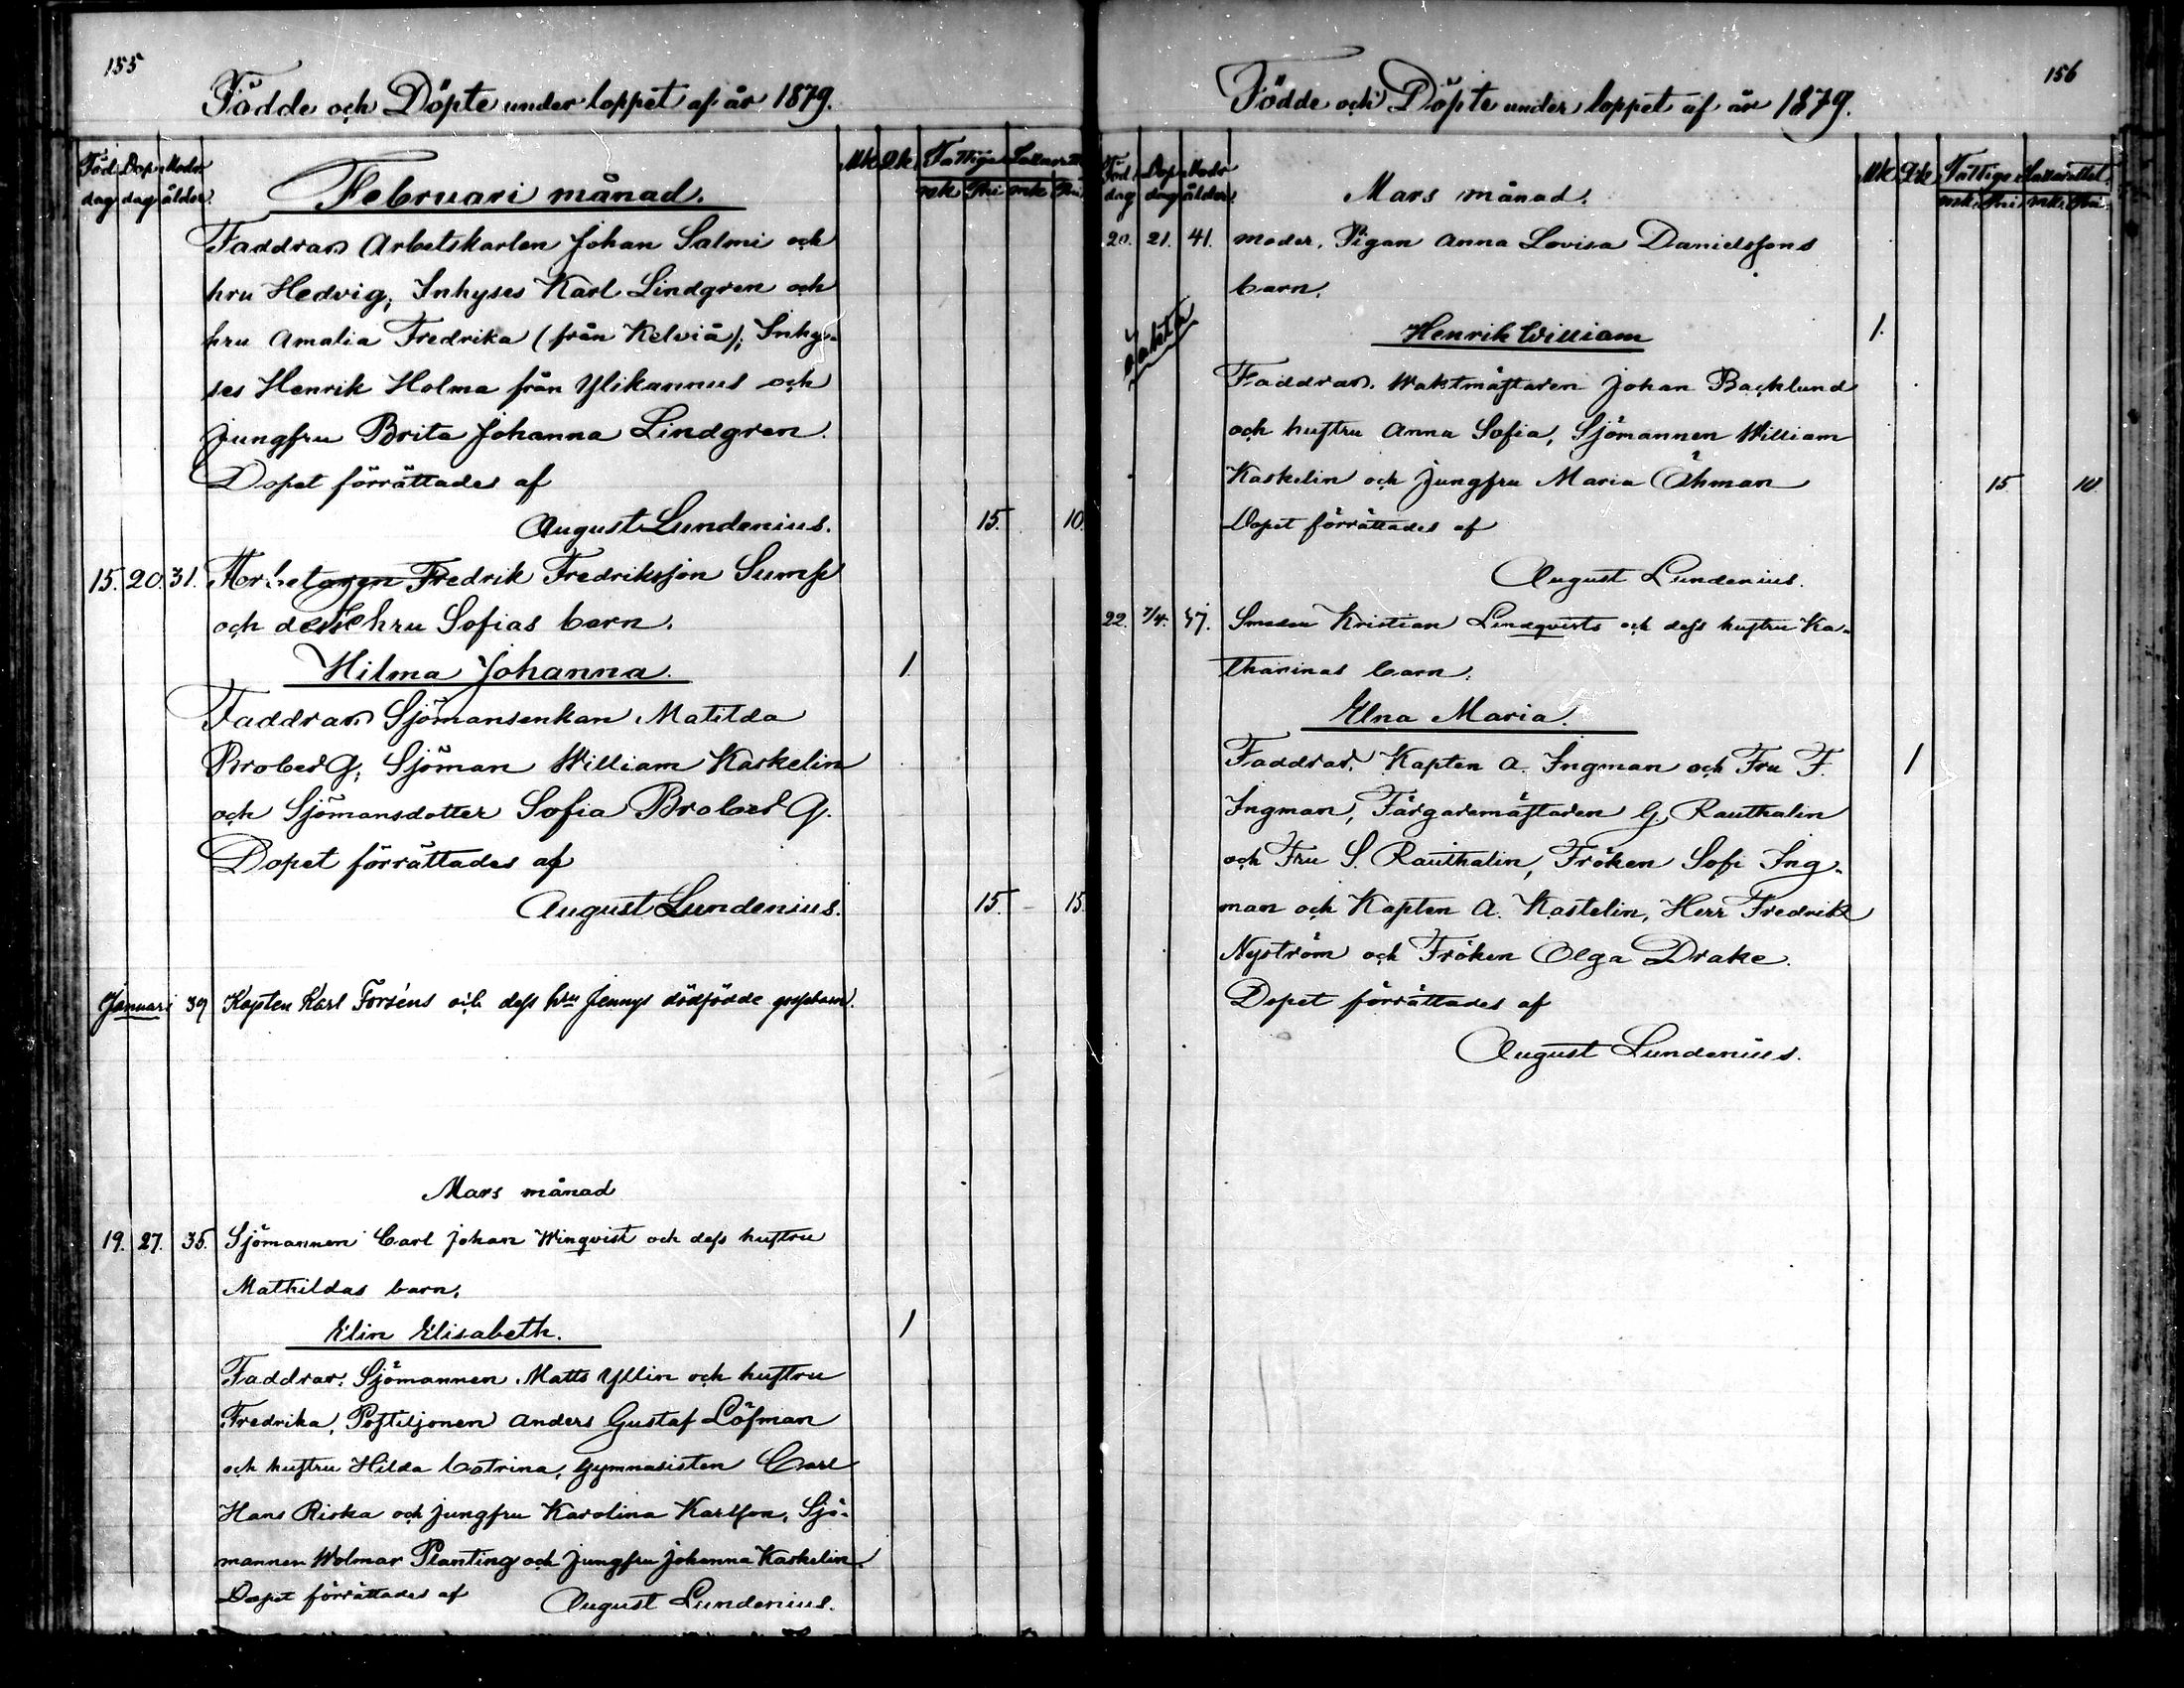 155
Födde och Döpte under loppet af år 1879.
Föd. Dop. Modr. Mk Qk. Fattige Lassarett
dag dag ålder. mk Pni mk Pni
Februari månad.
Faddrar Arbetskarlen Johan Salmi och
hru Hedvig, Inhyses Karl Lindgren och
hru Amalia Fredrika (från Kelviå), Inhy-
ses Henrik Holma från Ylikannus och
jungfru Brita Johanna Lindgren.
Dopet förrättades af
August Lundenius. 15. 10.
15. 20. 31. Fredrik Fredriksson Sump
och dess hru Sofias barn.
Hilma Johanna. 1
Faddrar Sjömansenkan Matilda
Broberg, Sjöman William Kaskelin
och Sjömansdotter Sofia Broberg.
Dopet förrättades af
August Lundenius. 15. 15.
Januari 39 Kapten Karl Forséns och dess hru Jennys dödfödde gossebarn.
Mars månad
19. 27. 35. Sjömannen Carl Johan Winqvist och dess hustru
Mathildas barn,
Elin Elisabeth. 1
Faddrar. Sjömannen Matts Yllin och hustru
Fredrika, Postiljonen Anders Gustaf Löfman
och hustru Hilda Catrina, Gymnasisten Carl
Hans Riska och jungfru Karolina Karlson, Sjö-
mannen Wolmar Planting och jungfru Johanna Kaskelin.
Dopet förrättades af August Lundenius.
156
Födde och Döpte under loppet af år 1879.
Föd. Dop. Modr. Mk Qk Fattige Lassarettet
dag dag ålder. mk. Pni. mk. Pni.
Mars månad.
20. 21. 41. moder. Pigan Anna Lovisa Danielssons
barn.
oäkta Henrik William 1.
Faddrar. Waktmästaren Johan Backlund
och hustru Anna Sofia, Sjömannen William
Kaskelin och jungfru Maria Öhman 15 10
Dopet förrättades af
August Lundenius.
22. 7/4. 47. Smeden Kristian Lindqvists och dess hustru Ka-
tharinas barn.
Elna Maria.
Faddrar. Kapten A. Ingman och Fru F. 1
Ingman, Färgaremästaren G. Rauthalin
och Fru S. Rauthalin, Fröken Sofi Ing-
man och Kapten A. Kastelin, Herr Fredrik
Nyström och Fröken Olga Drake.
Dopet förrättades af
August Lundenius.